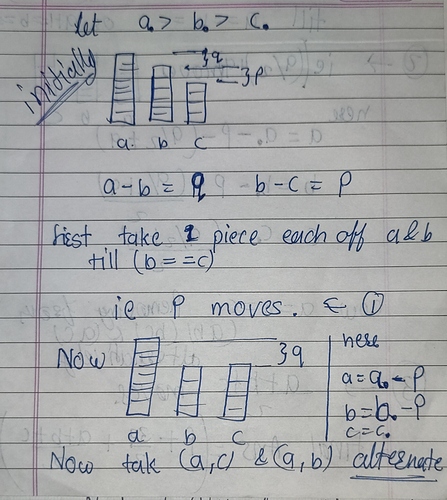 let a₀ > b₀ > c₀
initially
}q
}p
a b c
a-b = q b-c = p
first take 1 piece each off a & b
till (b==c)
ie p moves. ← ①
Now
}q
here
a = a₀ - p
b = b₀ - p
c = c₀
a b c
Now take (a,c) & (a,b) alternate